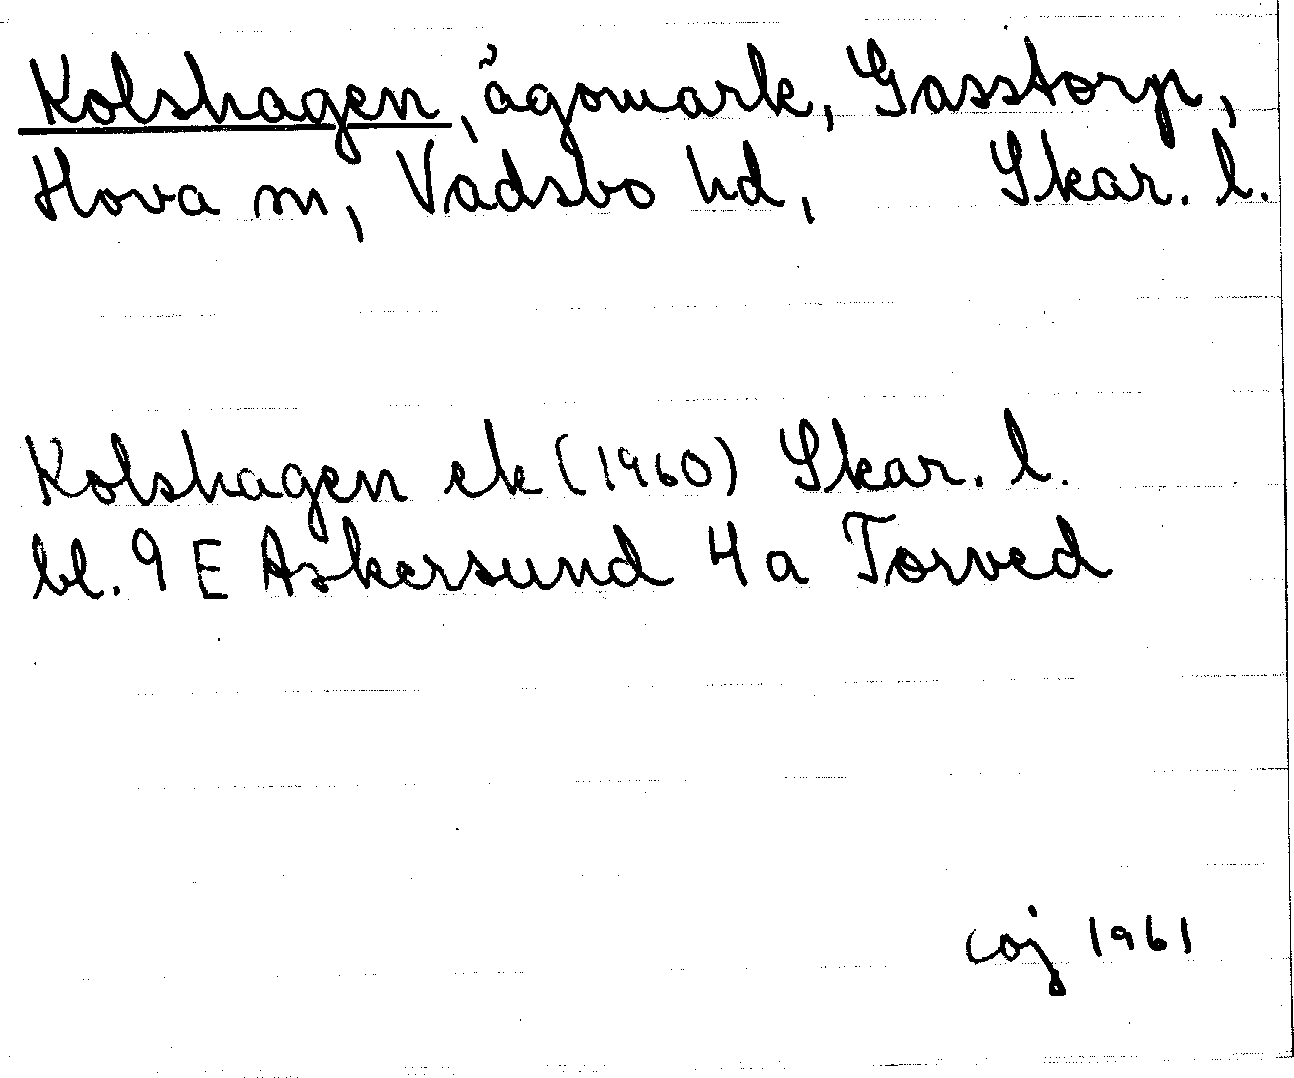 Kolshagen, ägomark, Gasstorp,
Hova sn, Vadsbo hd, Skar. l.
Kolshagen ek (1960) Skar. l.
bl. 9 E Askersund 4 a Torved
coj 1961